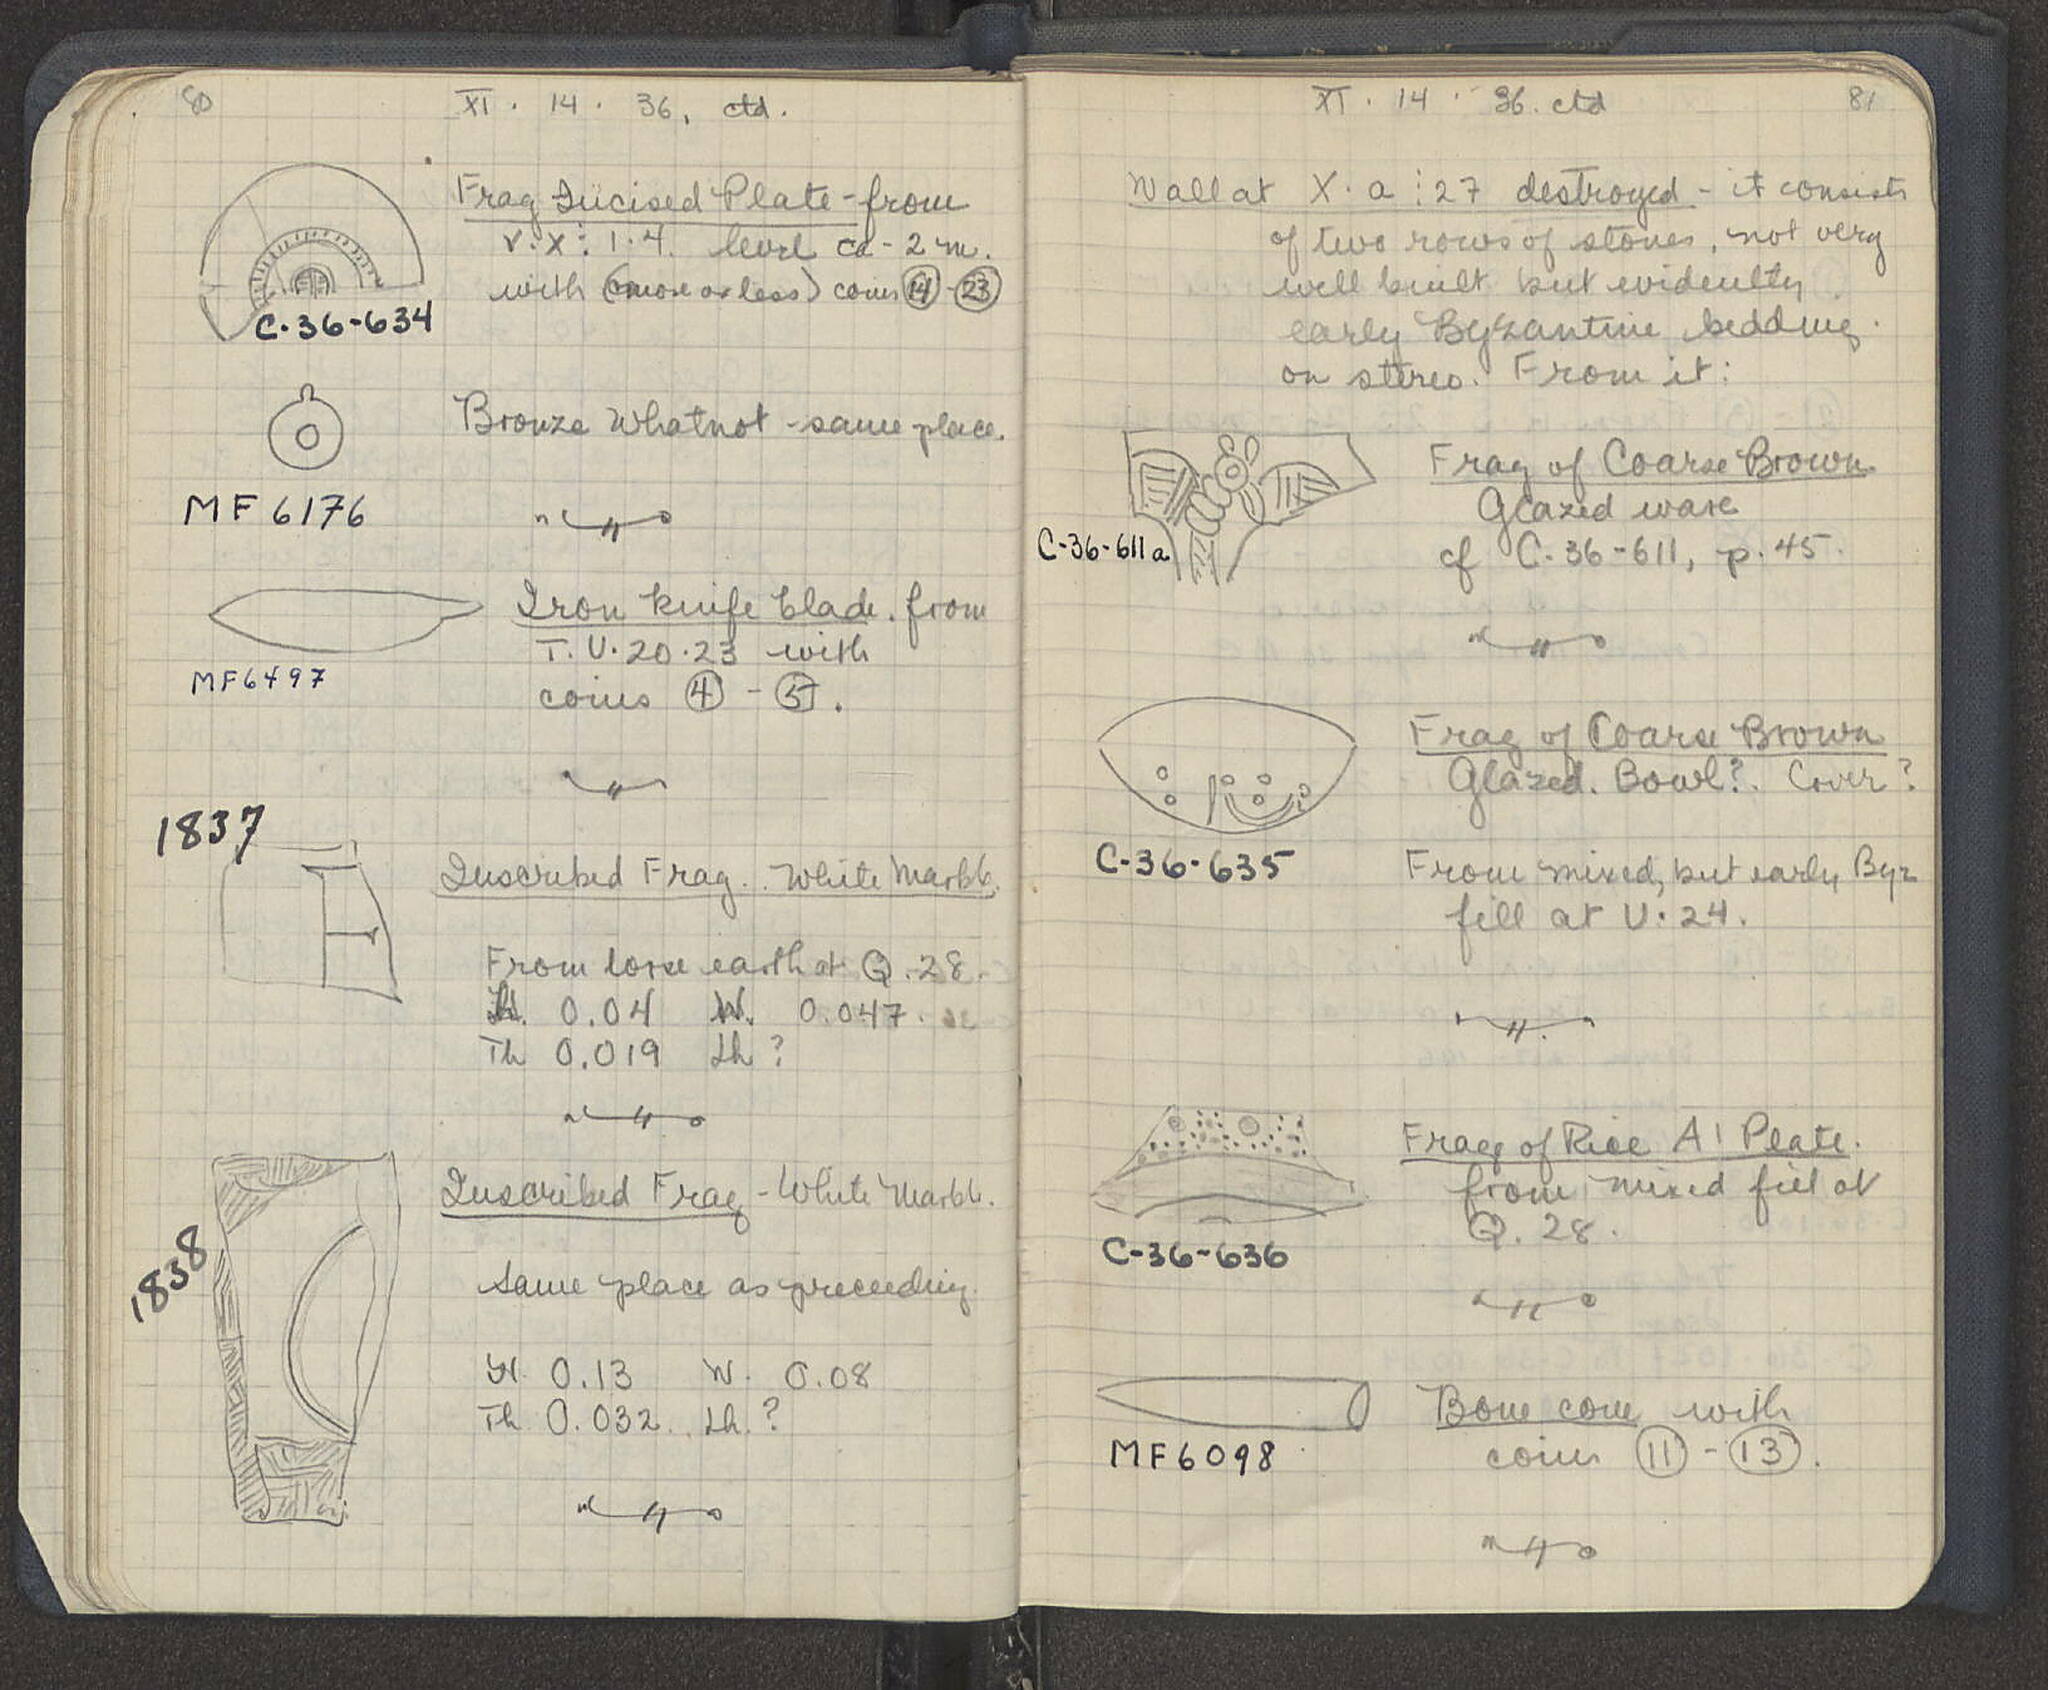 80
XI · 14 · 36, ctd.
Frag Incised Plate - from
V·X : 1·4. level ca - 2 m.
with (more or less) coins 14 - 23
C·36-634
Bronze Whatnot - same place.
MF 6176
Iron knife blade. from
T. U·20·23 with
coins 4 - 5.
MF6497
1837
Inscribed Frag. White Marbl.
From loose earth at Q. 28.
H. 0.04 W. 0.047.
Th 0.019 Lh ?
Inscribed Frag - White Marbl.
1838
Same place as preceeding.
H. 0.13 W. 0.08
Th 0.032. Lh. ?
XI · 14 · 36. ctd
81
Wall at X·a : 27 destroyed - it consists
of two rows of stones, not very
well built but evidently
early Byzantine bedding
on stereo. From it:
Frag of Coarse Brown
Glazed ware
cf C-36-611, p. 45.
C-36-611a
Frag of Coarse Brown
Glazed. Bowl?. Cover?
C-36-635
From mixed, but early Byz
fill at U·24.
Frag of Rice A1 Plate.
from mixed fill at
Q. 28.
C-36-636
Bone cone with
coins 11 - 13.
MF6098